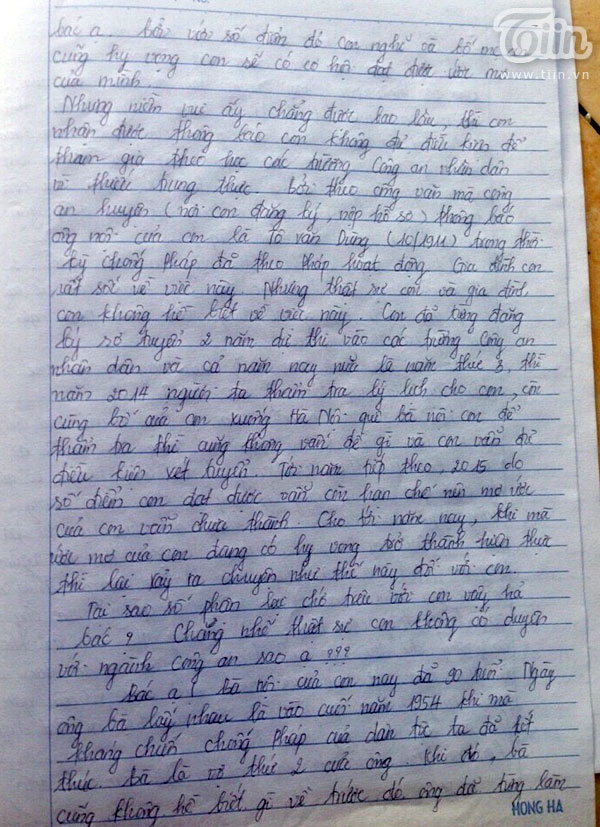 Tiin
www.tiin.vn
bác ạ. Bởi với số điểm đó con nghĩ và bố mẹ
cũng hy vọng con sẽ có cơ hội đạt được ước mơ
của mình.
Nhưng niềm vui ấy chẳng được bao lâu, thì con
nhận được thông báo con không đủ điều kiện để
tham gia theo học các trường Công an nhân dân
vì thiếu trung thực. Bởi theo công văn mà công
an huyện (nơi con đăng ký, nộp hồ sơ) thông báo
ông nội của con là Tô Văn Dũng (10/1911) trong thời
kỳ chống Pháp đã theo Pháp hoạt động. Gia đình con
rất sốc về việc này. Nhưng thật sự con và gia đình
con không hề biết về việc này. Con đã từng đăng
ký sơ tuyển 2 năm dự thi vào các trường Công an
nhân dân và cả năm nay nữa là năm thứ 3, thì
năm 2014 người ta thẩm tra lý lịch cho con, còn
cùng bố của con xuống Hà Nội quê bà nội con để
thẩm tra thì cũng không vấn đề gì và con vẫn đủ
điều kiện xét tuyển. Tới năm tiếp theo, 2015 do
số điểm con đạt được vẫn còn hạn chế nên mơ ước
của con vẫn chưa thành. Cho tới năm nay, khi mà
ước mơ của con đang có hy vọng trở thành hiện thực
thì lại xảy ra chuyện như thế này đối với con.
Tại sao số phận lại chớ trêu với con vậy hả
bác? Chẳng nhẽ thật sự con không có duyên
với ngành công an sao ạ???
Bác ạ! Bà nội của con nay đã 90 tuổi. Ngày
ông bà lấy nhau là vào cuối năm 1954 khi mà
kháng chiến chống Pháp của dân tộc ta đã kết
thúc. Bà là vợ thứ 2 của ông. Khi đó, bà
cũng không hề biết gì về trước đó ông đã từng làm
HONG HA